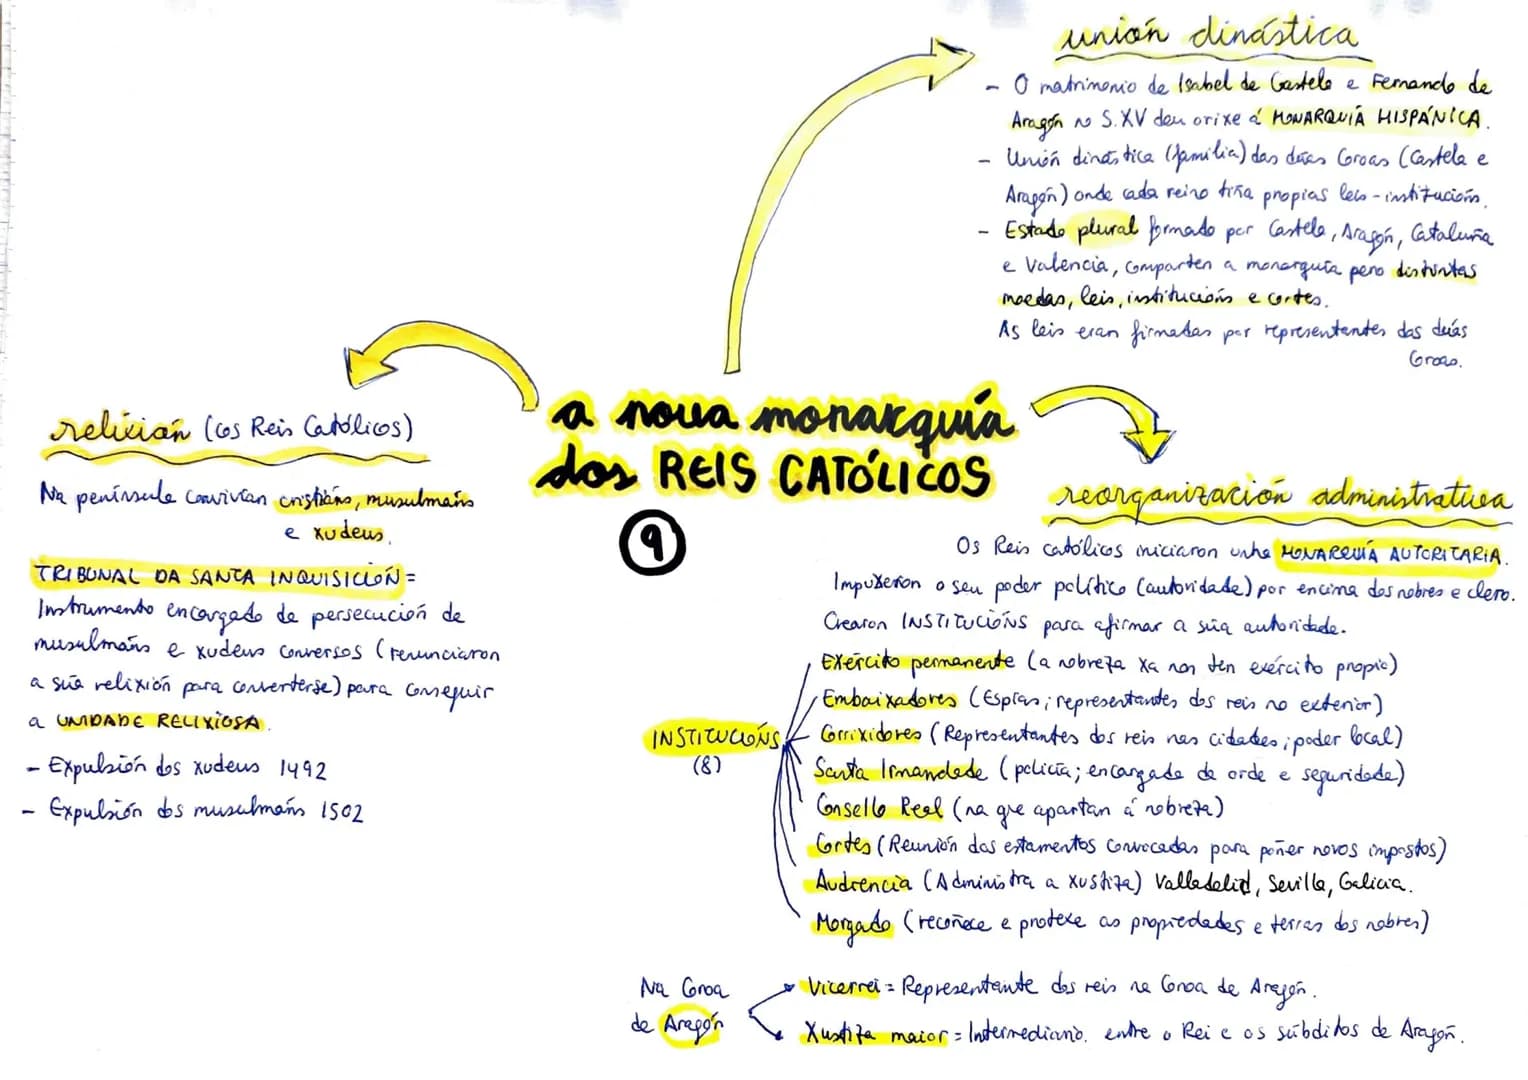 unión dinástica
- O matrimonio de Isabel de Castela e Fernando de
Aragón no S.XV deu orixe á MONARQUÍA HISPÁNICA.
- Unión dinástica (familia) das dúas Coroas (Castela e
Aragón) onde cada reino tiña propias leis - institucións.
- Estado plural formado por Castela, Aragón, Cataluña
e Valencia, comparten a monarquía pero distintas
moedas, leis, institucións e cortes.
As leis eran firmadas por representantes das dúas
Coroas.
a nova monarquía
dos REIS CATÓLICOS
9
relixión (cos Reis Católicos)
Na península convivían cristiáns, musulmáns
e xudeus.
TRIBUNAL DA SANTA INQUISICIÓN =
Instrumento encargado de persecución de
musulmáns e xudeus conversos (renunciaron
a súa relixión para converterse) para conseguir
a UNIDADE RELIXIOSA.
- Expulsión dos xudeus 1492
- Expulsión dos musulmáns 1502
reorganización administrativa
Os Reis católicos iniciaron unha MONARQUÍA AUTORITARIA.
Impuxeron o seu poder político (autoridade) por encima dos nobres e clero.
Crearon INSTITUCIÓNS para afirmar a súa autoridade.
INSTITUCIÓNS
(8)
Exército permanente (a nobreza xa non ten exército propio)
Embaixadores (Espías; representantes dos reis no exterior)
Corrixidores (Representantes dos reis nas cidades; poder local)
Santa Irmandade (policía; encargada da orde e seguridade)
Consello Real (na que apartan á nobreza)
Cortes (Reunión dos estamentos convocadas para poñer novos impostos)
Audiencia (Administra a xustiza) Valladolid, Sevilla, Galicia.
Morgado (recoñece e protexe as propiedades e terras dos nobres)
Na Coroa
de Aragón
Vicerrei = Representante dos reis na Coroa de Aragón.
Xustiza maior = Intermediario entre o Rei e os súbditos de Aragón.